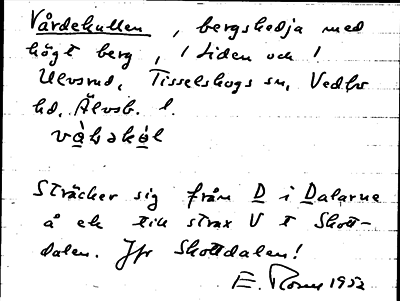 Vårdekullen, bergskedja med
högt berg, i Liden och i
Ulvsrud, Tisselskogs sn, Vedbo
hd, Älvsb. l.
Sträcker sig från D i Dalarne
å ek till strax V t Skott-
dalen. Jfr Skottdalen!
E. 1952